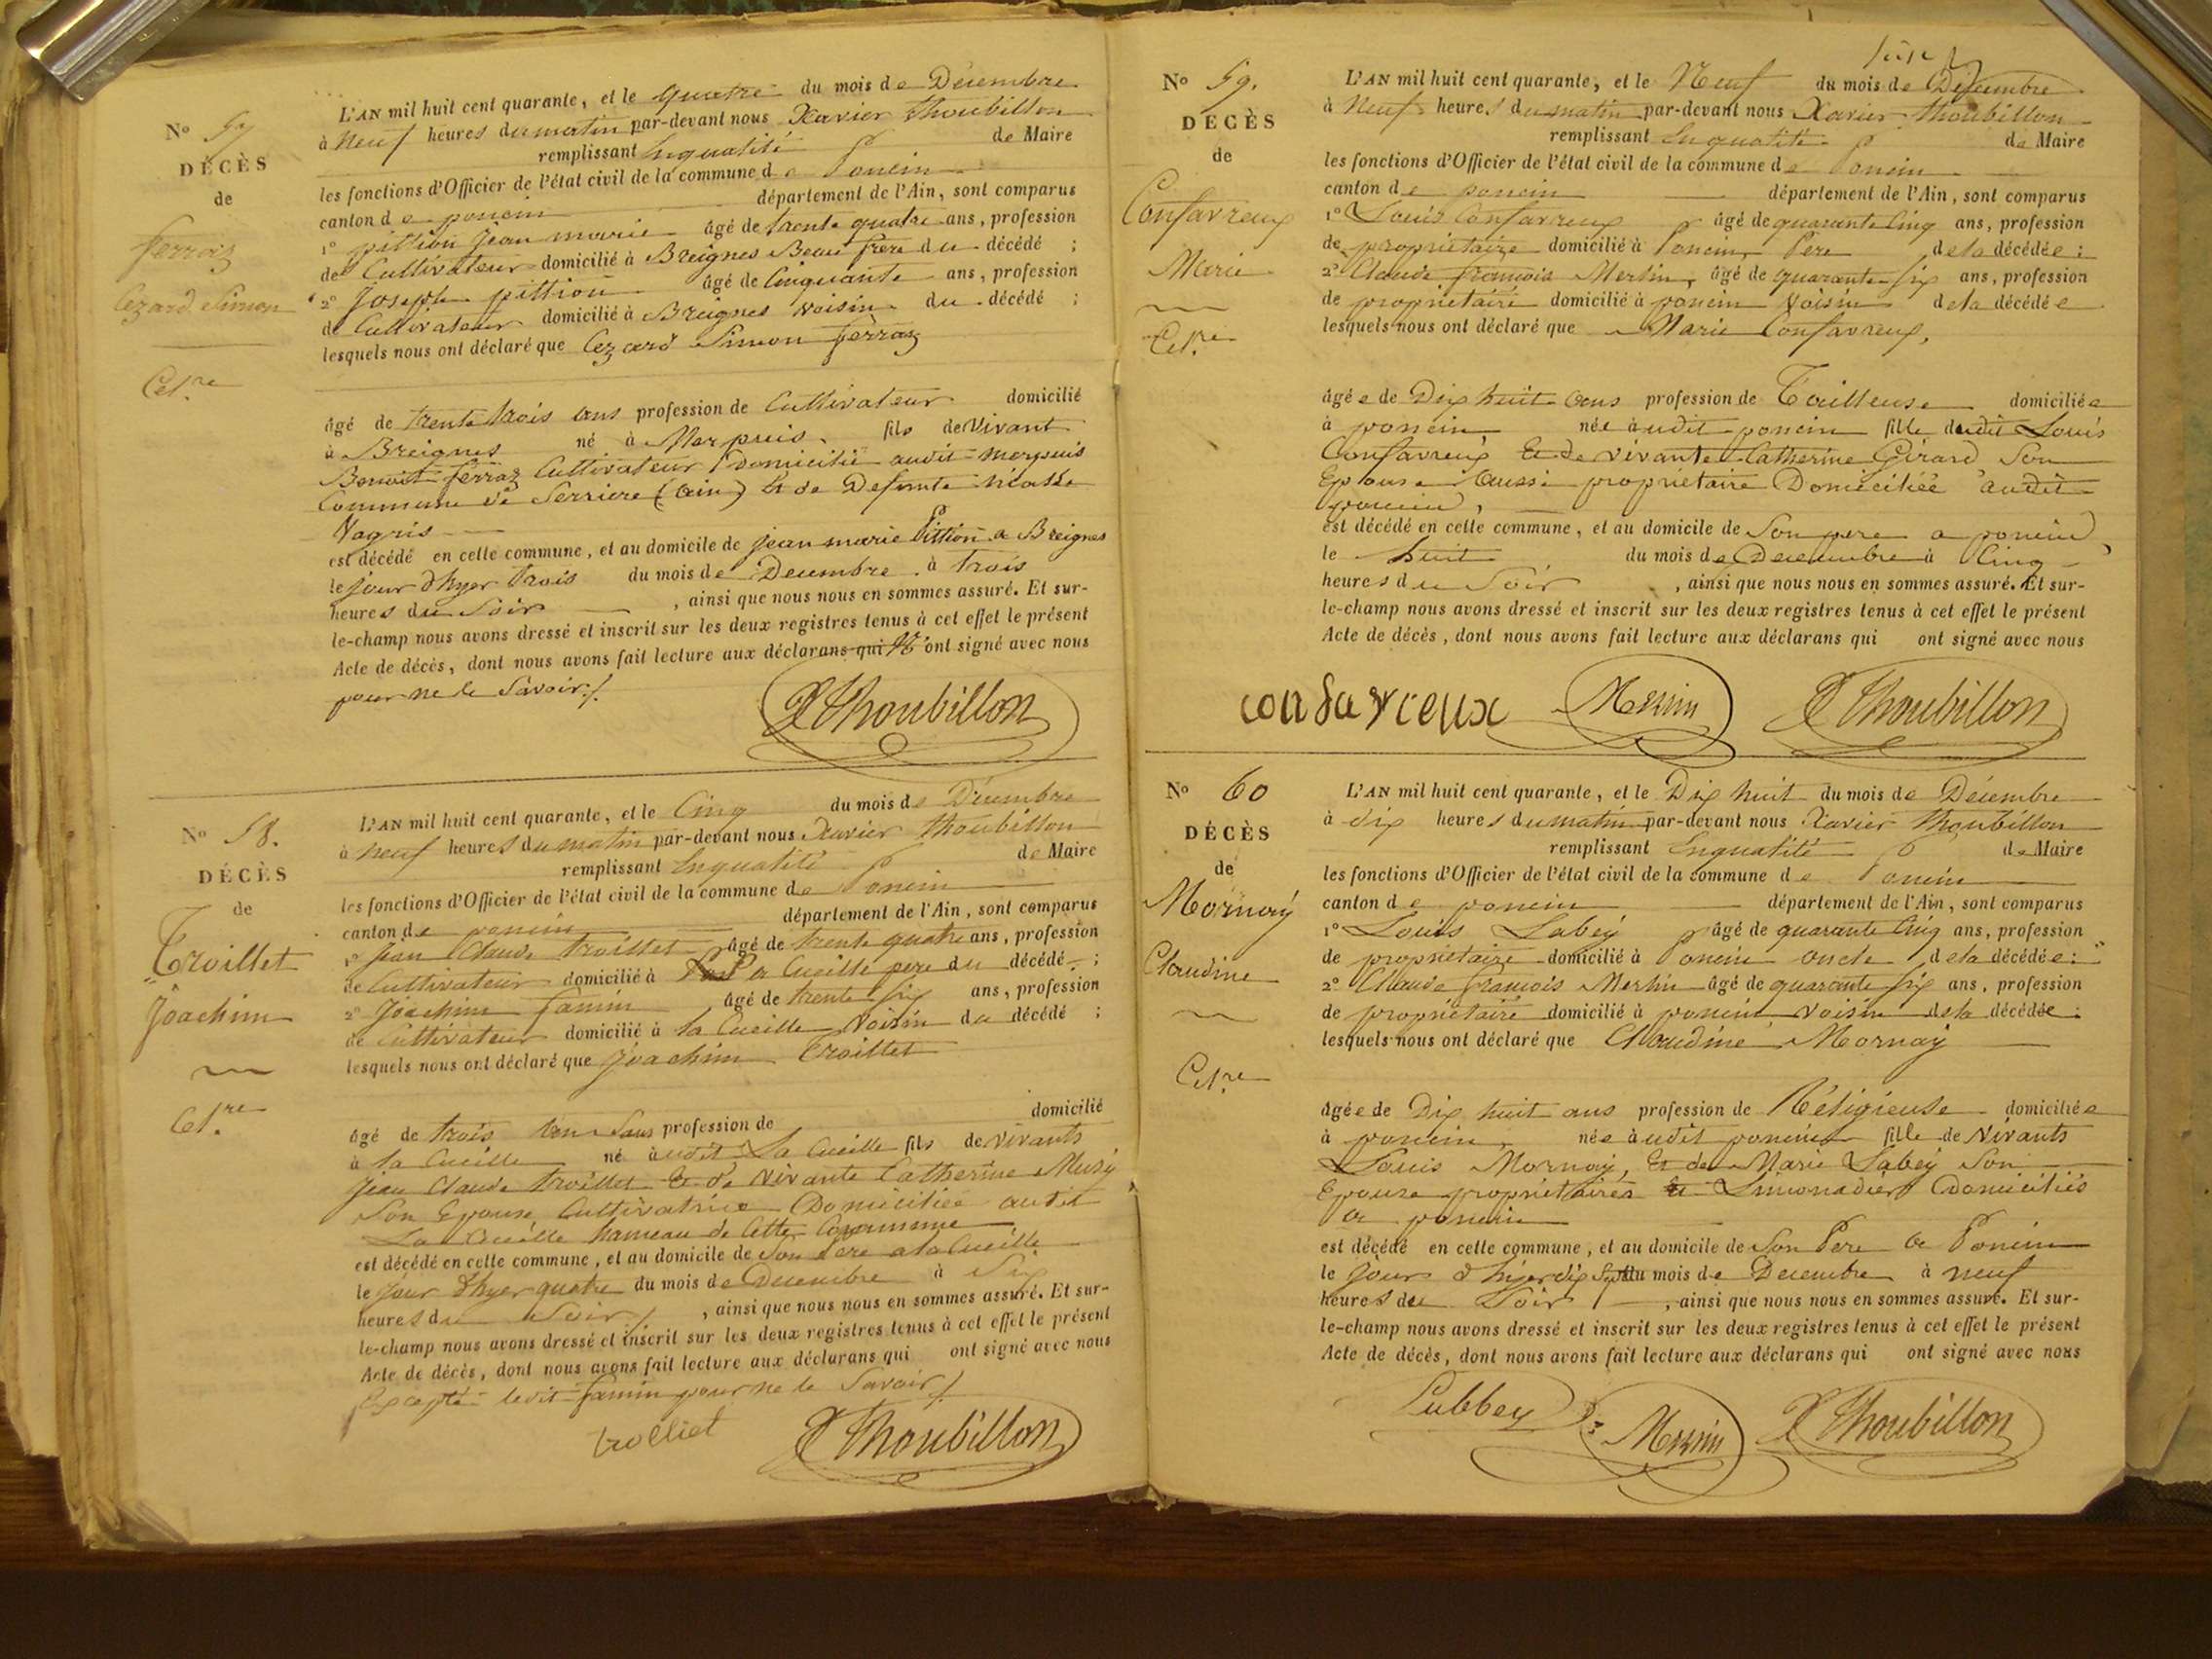 No 57
DÉCÈS
de
ferraz
Cezard Simon
Cet.re
L'AN mil huit cent quarante, et le quatre du mois de Décembre
à Neuf heures du matin par-devant nous Xavier Thoubillon
remplissant Enqualité de Maire
les fonctions d'Officier de l'état civil de la commune de Poncin
canton de poncin département de l'Ain, sont comparus
1° pittion Jean marie âgé de trente quatre ans, profession
de Cultivateur domicilié à Breignes Beau frere du décédé ;
2° Joseph pittion âgé de Cinquante ans, profession
de Cultivateur domicilié à Breignes voisin du décédé ;
lesquels nous ont déclaré que Cezard Simon ferraz
âgé de trente trois ans profession de Cultivateur domicilié
à Breignes né à Merpuis fils de Vivant
Benoit ferraz Cultivateur Domicilié audit merpuis
Commune de Serriere (ain) Et de Defunte
Vagris
est décédé en cette commune, et au domicile de jean marie Pittion a Breignes
le jour d'hyer trois du mois de Decembre à trois
heures du Soir , ainsi que nous nous en sommes assuré. Et sur-
le-champ nous avons dressé et inscrit sur les deux registres tenus à cet effet le présent
Acte de décès, dont nous avons fait lecture aux déclarans qui N'ont signé avec nous
pour ne le Savoir./.
X Thoubillon
No 58.
DÉCÈS
de
Troillet
Joachim
Cet.re
L'AN mil huit cent quarante, et le Cinq du mois de Décembre
à neuf heures du matin par-devant nous Xavier Thoubillon
remplissant Enqualité de Maire
les fonctions d'Officier de l'état civil de la commune de Poncin
canton de poncin département de l'Ain, sont comparus
1° Jean Claude troillet âgé de trente quatre ans, profession
de Cultivateur domicilié à la Cueille pere du décédé ;
2° Joachim famin âgé de trente six ans, profession
de Cultivateur domicilié à la Cueille Voisin du décédé ;
lesquels nous ont déclaré que Joachim Troillet
âgé de trois ans Sans profession de domicilié
à la Cueille né audit La Cueille fils de Vivants
Jean Claude troillet Et de Vivante Catherine Muzy
Son Epouse Cultivatrice Domiciliée audit
La Cueille hameau de Cette Commune
est décédé en cette commune, et au domicile de Son Pere a la Cueille
le jour d'hyer quatre du mois de Decembre à Six
heures du Soir , ainsi que nous nous en sommes assuré. Et sur-
le-champ nous avons dressé et inscrit sur les deux registres tenus à cet effet le présent
Acte de décès, dont nous avons fait lecture aux déclarans qui ont signé avec nous
Excepté ledit famin pour ne le Savoir./.
trolliet X Thoubillon
No 59.
DÉCÈS
de
Confavreux
Marie
Cet.re
L'AN mil huit cent quarante, et le Neuf du mois de Décembre
à Neuf heures du matin par-devant nous Xavier Thoubillon
remplissant Enqualité de Maire
les fonctions d'Officier de l'état civil de la commune de Poncin
canton de poncin département de l'Ain, sont comparus
1° Louis Confavreux âgé de quarante Cinq ans, profession
de propriétaire domicilié à Poncin Pere de la décédée ;
2° Claude françois Merlin, âgé de quarante six ans, profession
de propriétaire domicilié à poncin Voisin de la décédée
lesquels nous ont déclaré que Marie Confavreux,
âgée de Dix huit ans profession de Tailleuse domiciliée
à poncin née audit poncin fille dudit Louis
Confavreux Et de vivante Catherine Girard Son
Epouse Aussi propriétaire Domiciliée audit
poncin,
est décédé en cette commune, et au domicile de Son pere a poncin,
le huit du mois de Decembre à Cinq
heures du Soir , ainsi que nous nous en sommes assuré. Et sur-
le-champ nous avons dressé et inscrit sur les deux registres tenus à cet effet le présent
Acte de décès, dont nous avons fait lecture aux déclarans qui ont signé avec nous
confavreux Merlin X Thoubillon
No 60
DÉCÈS
de
Mornay
Claudine
Cet.re
L'AN mil huit cent quarante, et le Dix huit du mois de Décembre
à dix heures du matin par-devant nous Xavier Thoubillon
remplissant Enqualité de Maire
les fonctions d'Officier de l'état civil de la commune de Poncin
canton de poncin département de l'Ain, sont comparus
1° Louis Labey âgé de quarante Cinq ans, profession
de propriétaire domicilié à Poncin oncle de la décédée ;
2° Claude françois Merlin âgé de quarante six ans, profession
de propriétaire domicilié à poncin voisin de la décédée ;
lesquels nous ont déclaré que Claudine Mornay
âgée de Dix huit ans profession de Réligieuse domiciliée
à poncin, née audit poncin fille de Vivants
Louis Mornay, Et de Marie Labey Son
Epouse propriétaires Et Limonadier Domiciliés
a poncin
est décédé en cette commune, et au domicile de Son Pere a Poncin
le Jour d'hyer dix Sept du mois de Decembre à neuf
heures du Soir , ainsi que nous nous en sommes assuré. Et sur-
le-champ nous avons dressé et inscrit sur les deux registres tenus à cet effet le présent
Acte de décès, dont nous avons fait lecture aux déclarans qui ont signé avec nous
Lubbey Merlin X Thoubillon